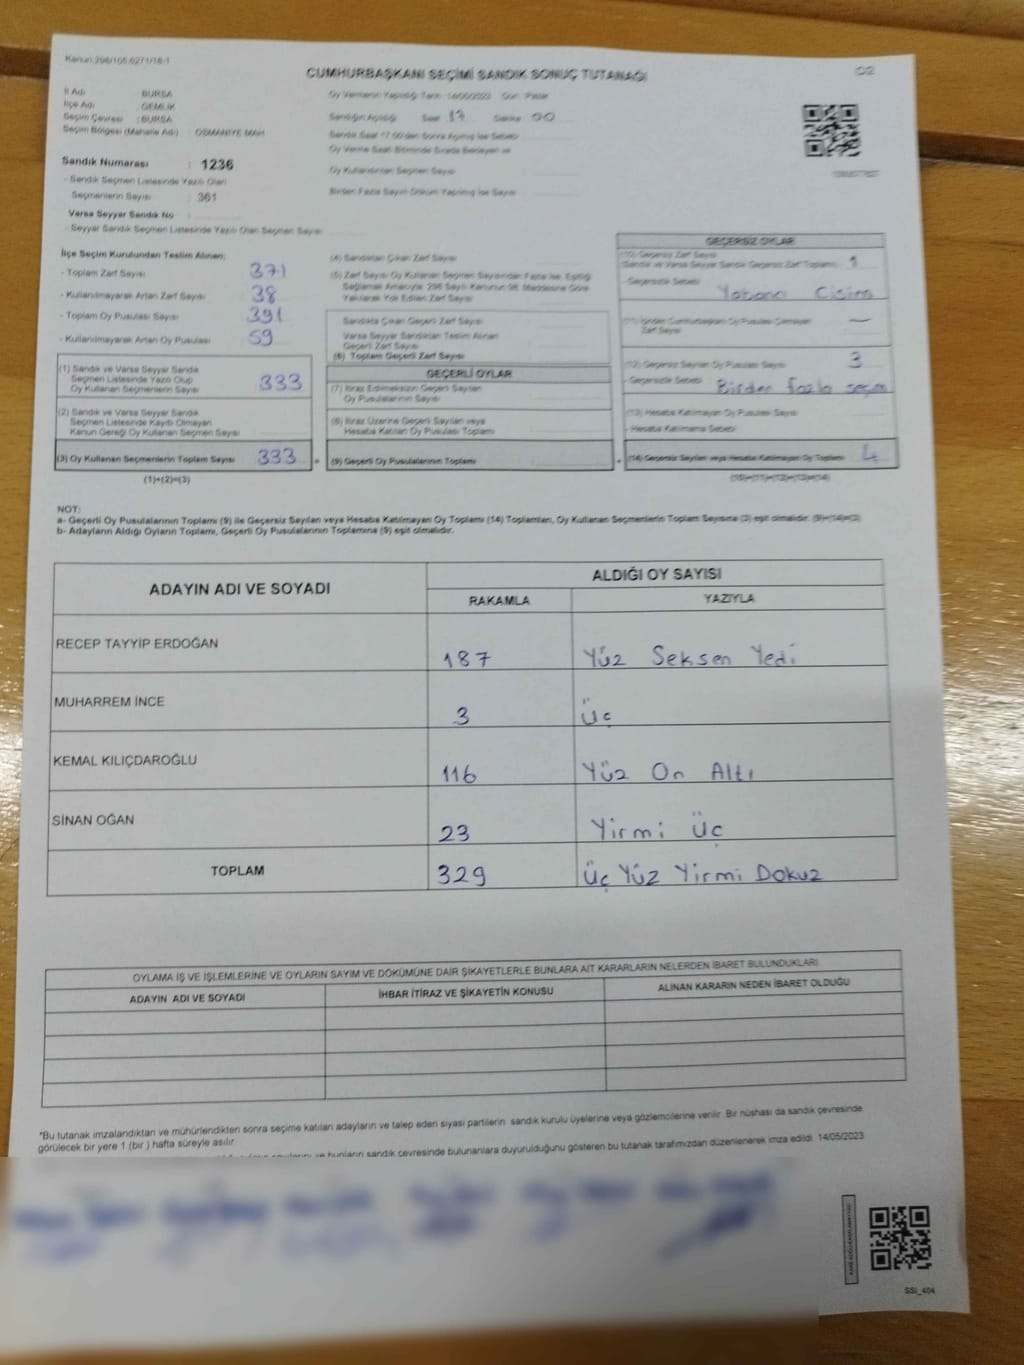 Kanun 298/105,6271/16-1
CUMHURBAŞKANI SEÇİMİ SANDIK SONUÇ TUTANAĞI
İl Adı : BURSA
İlçe Adı : GEMLİK
Seçim Çevresi : BURSA
Seçim Bölgesi (Mahalle Adı) : OSMANİYE MAH.
Oy Vermenin Yapıldığı Tarih : 14/05/2023 Gün : Pazar
Sandığın Açıldığı Saat 17 Dakika 00
Sandık Saat 17.00'den Sonra Açılmış İse Sebebi
Oy Verme Saati Bitiminde Sırada Bekleyen ve
Oy Kullandırılan Seçmen Sayısı
Birden Fazla Sayım Döküm Yapılmış İse Sayısı
Sandık Numarası : 1236
- Sandık Seçmen Listesinde Yazılı Olan
Seçmenlerin Sayısı : 361
Varsa Seyyar Sandık No :
- Seyyar Sandık Seçmen Listesinde Yazılı Olan Seçmen Sayısı
İlçe Seçim Kurulundan Teslim Alınan;
- Toplam Zarf Sayısı 371
- Kullanılmayarak Artan Zarf Sayısı 38
- Toplam Oy Pusulası Sayısı 391
- Kullanılmayarak Artan Oy Pusulası 59
(1) Sandık ve Varsa Seyyar Sandık
Seçmen Listesinde Yazılı Olup
Oy Kullanan Seçmenlerin Sayısı 333
(2) Sandık ve Varsa Seyyar Sandık
Seçmen Listesinde Kaydı Olmayan
Kanun Gereği Oy Kullanan Seçmen Sayısı
(3) Oy Kullanan Seçmenlerin Toplam Sayısı 333
(1)+(2)=(3)
(4) Sandıktan Çıkan Zarf Sayısı
(5) Zarf Sayısı Oy Kullanan Seçmen Sayısından Fazla İse, Eşitliği
Sağlamak Amacıyla, 298 Sayılı Kanunun 98. Maddesine Göre
Yakılarak Yok Edilen Zarf Sayısı
Sandıkta Çıkan Geçerli Zarf Sayısı
Varsa Seyyar Sandıktan Teslim Alınan
Geçerli Zarf Sayısı
(6) Toplam Geçerli Zarf Sayısı
GEÇERLİ OYLAR
(7) İtiraz Edilmeksizin Geçerli Sayılan
Oy Pusulalarının Sayısı
(8) İtiraz Üzerine Geçerli Sayılan veya
Hesaba Katılan Oy Pusulası Toplamı
(9) Geçerli Oy Pusulalarının Toplamı
GEÇERSİZ OYLAR
(10) Geçersiz Zarf Sayısı
(Sandık ve Varsa Seyyar Sandık Geçersiz Zarf Toplamı) 1
- Geçersizlik Sebebi Yabancı Cisim
(11) İçinden Cumhurbaşkanı Oy Pusulası Çıkmayan
Zarf Sayısı —
(12) Geçersiz Sayılan Oy Pusulası Sayısı 3
- Geçersizlik Sebebi Birden fazla seçim
(13) Hesaba Katılmayan Oy Pusulası Sayısı
- Hesaba Katılmama Sebebi
(14) Geçersiz Sayılan veya Hesaba Katılmayan Oy Toplamı 4
(10)+(11)+(12)+(13)=(14)
NOT:
a- Geçerli Oy Pusulalarının Toplamı (9) ile Geçersiz Sayılan veya Hesaba Katılmayan Oy Toplamı (14) Toplamları, Oy Kullanan Seçmenlerin Toplam Sayısına (3) eşit olmalıdır. (9)+(14)=(3)
b- Adayların Aldığı Oyların Toplamı, Geçerli Oy Pusulalarının Toplamına (9) eşit olmalıdır.
ADAYIN ADI VE SOYADI ALDIĞI OY SAYISI
RAKAMLA YAZIYLA
RECEP TAYYİP ERDOĞAN 187 Yüz Seksen Yedi
MUHARREM İNCE 3 Üç
KEMAL KILIÇDAROĞLU 116 Yüz On Altı
SİNAN OĞAN 23 Yirmi Üç
TOPLAM 329 Üç Yüz Yirmi Dokuz
OYLAMA İŞ VE İŞLEMLERİNE VE OYLARIN SAYIM VE DÖKÜMÜNE DAİR ŞİKAYETLERLE BUNLARA AİT KARARLARIN NELERDEN İBARET BULUNDUKLARI
ADAYIN ADI VE SOYADI İHBAR İTİRAZ VE ŞİKAYETİN KONUSU ALINAN KARARIN NEDEN İBARET OLDUĞU
*Bu tutanak imzalandıktan ve mühürlendikten sonra seçime katılan adayların ve talep eden siyasi partilerin sandık kurulu üyelerine veya gözlemcilerine verilir. Bir nüshası da sandık çevresinde
görülecek bir yere 1 (bir ) hafta süreyle asılır.
ve bunların sandık çevresinde bulunanlara duyurulduğunu gösteren bu tutanak tarafımızdan düzenlenerek imza edildi. 14/05/2023
SSI_404